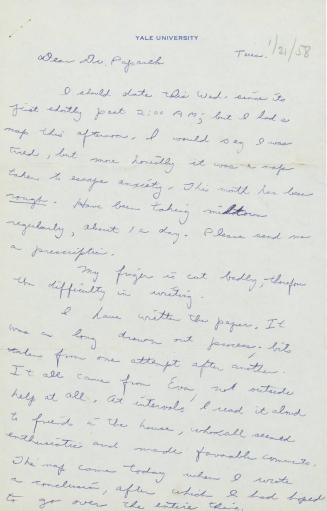 YALE UNIVERSITY
Tues. 1/21/58
Dear Dr.
I should date this Wed. since its
just shortly past 2:00 A.M; but I had a
nap this afternoon. I would say I was
tired, but more honestly it was a nap
taken to escape anxiety. This month has been
rough. Have been taking miltown
regularly, about 1 a day. Please send me
a prescription.
My finger is cut badly, therefore
the difficulty in writing.
I have written the paper. It
was a long drawn out process; bits
taken from one attempt after another.
It all came from Eva, not outside
help at all. At intervals I read it aloud
to friends in the house, who all seemed
enthusiastic and made favorable comments.
The nap came today when I wrote
a conclusion, after which I had hoped
to go over the entire thing